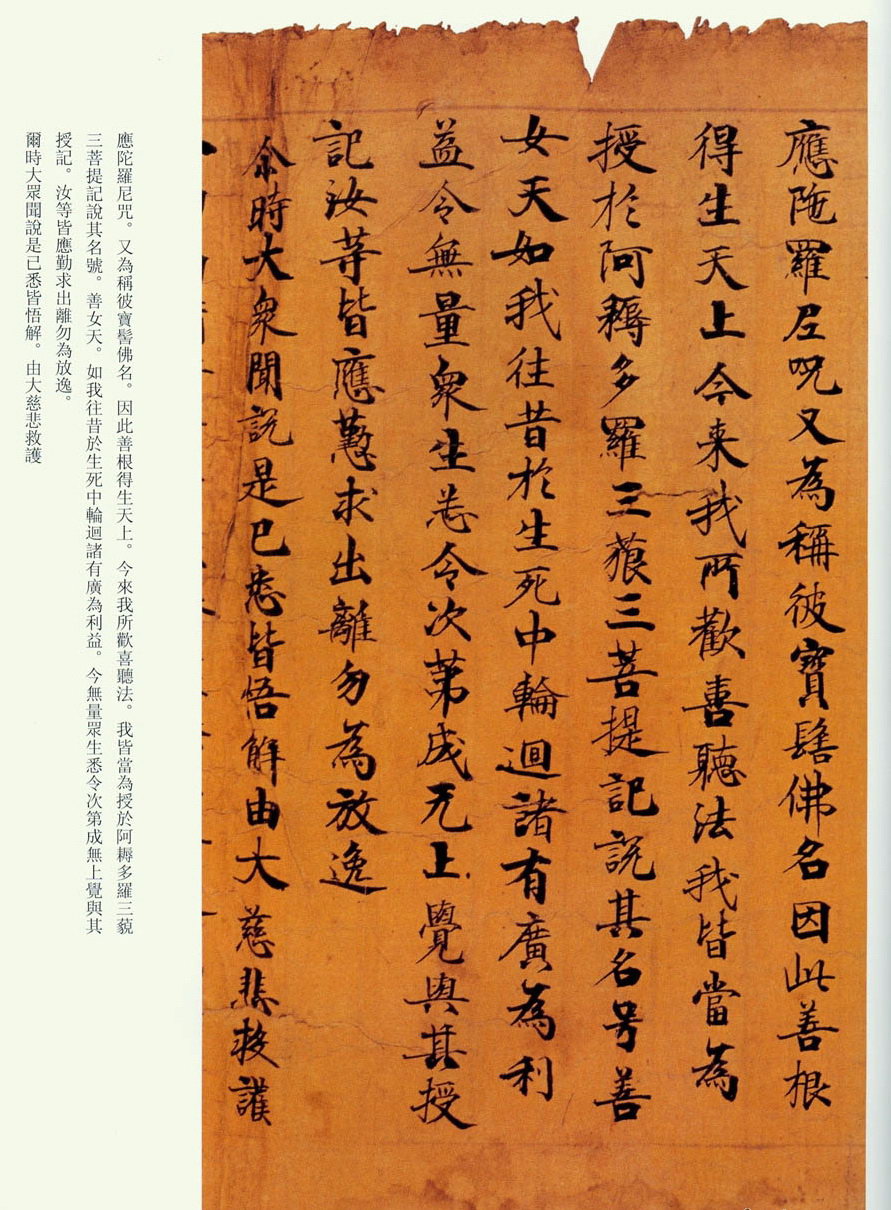 應陁羅尼呪又為稱彼寳髻佛名因此善根
得生天上今来我所歡喜聽法我皆當為
授於阿耨多羅三藐三菩提記說其名号善
女天如我往昔於生死中輪迴諸有廣為利
益令無量衆生悉令次第成无上覺與其授
記汝等皆應懃求出離勿為放逸
尒時大衆聞說是已悉皆悟解由大慈悲救護
應陀羅尼咒。又為稱彼寶髻佛名。因此善根得生天上。今來我所歡喜聽法。我皆當為授於阿耨多羅三藐
三菩提記說其名號。善女天。如我往昔於生死中輪迴諸有廣為利益。今無量眾生悉令次第成無上覺與其
授記。汝等皆應勤求出離勿為放逸。
爾時大眾聞說是已悉皆悟解。由大慈悲救護